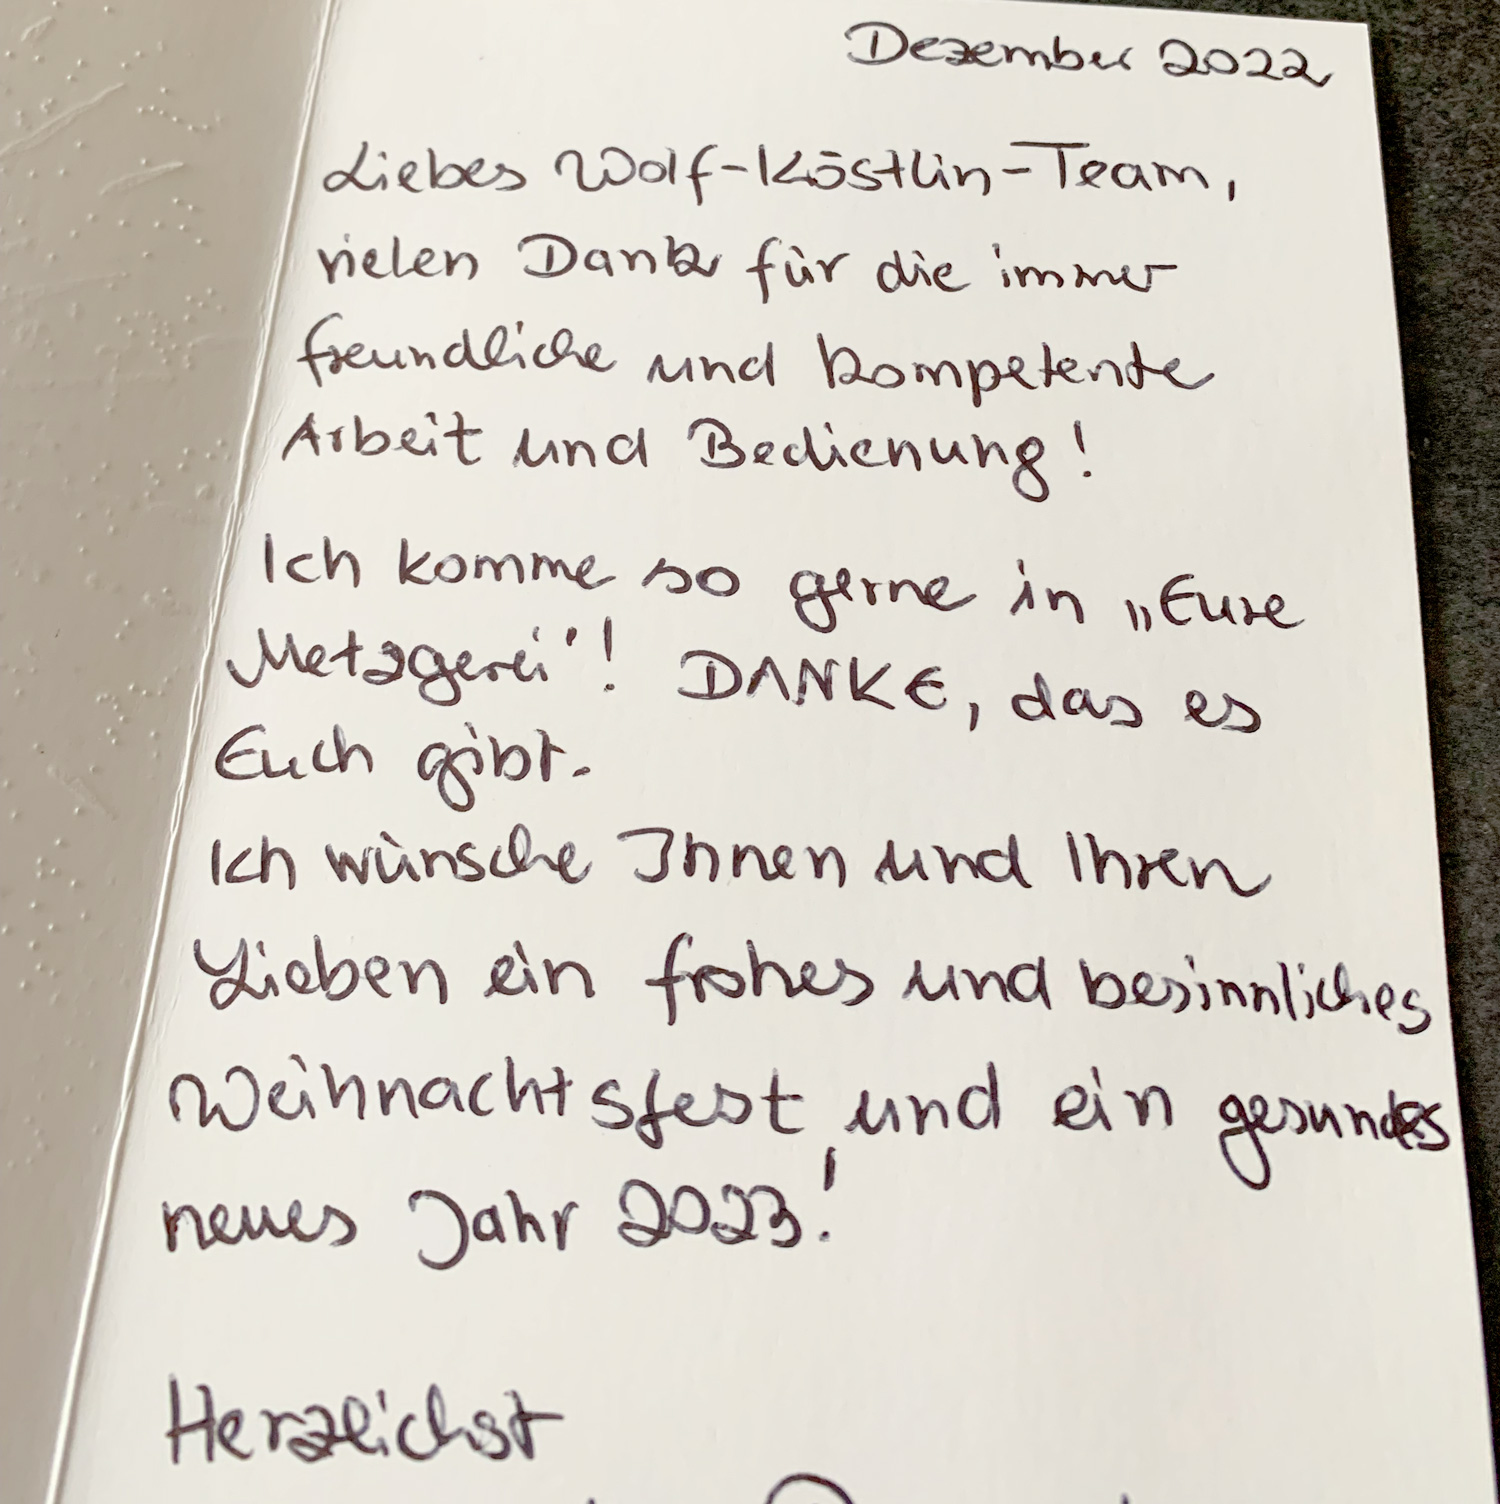 Dezember 2022
Liebes Wolf-Köstlin-Team,
vielen Dank für die immer
freundliche und kompetente
Arbeit und Bedienung!
Ich komme so gerne in „Eure
Metzgerei"! DANKE, das es
Euch gibt.
Ich wünsche Ihnen und Ihren
Lieben ein frohes und besinnliches
Weihnachtsfest und ein gesundes
neues Jahr 2023!
Herzlichst